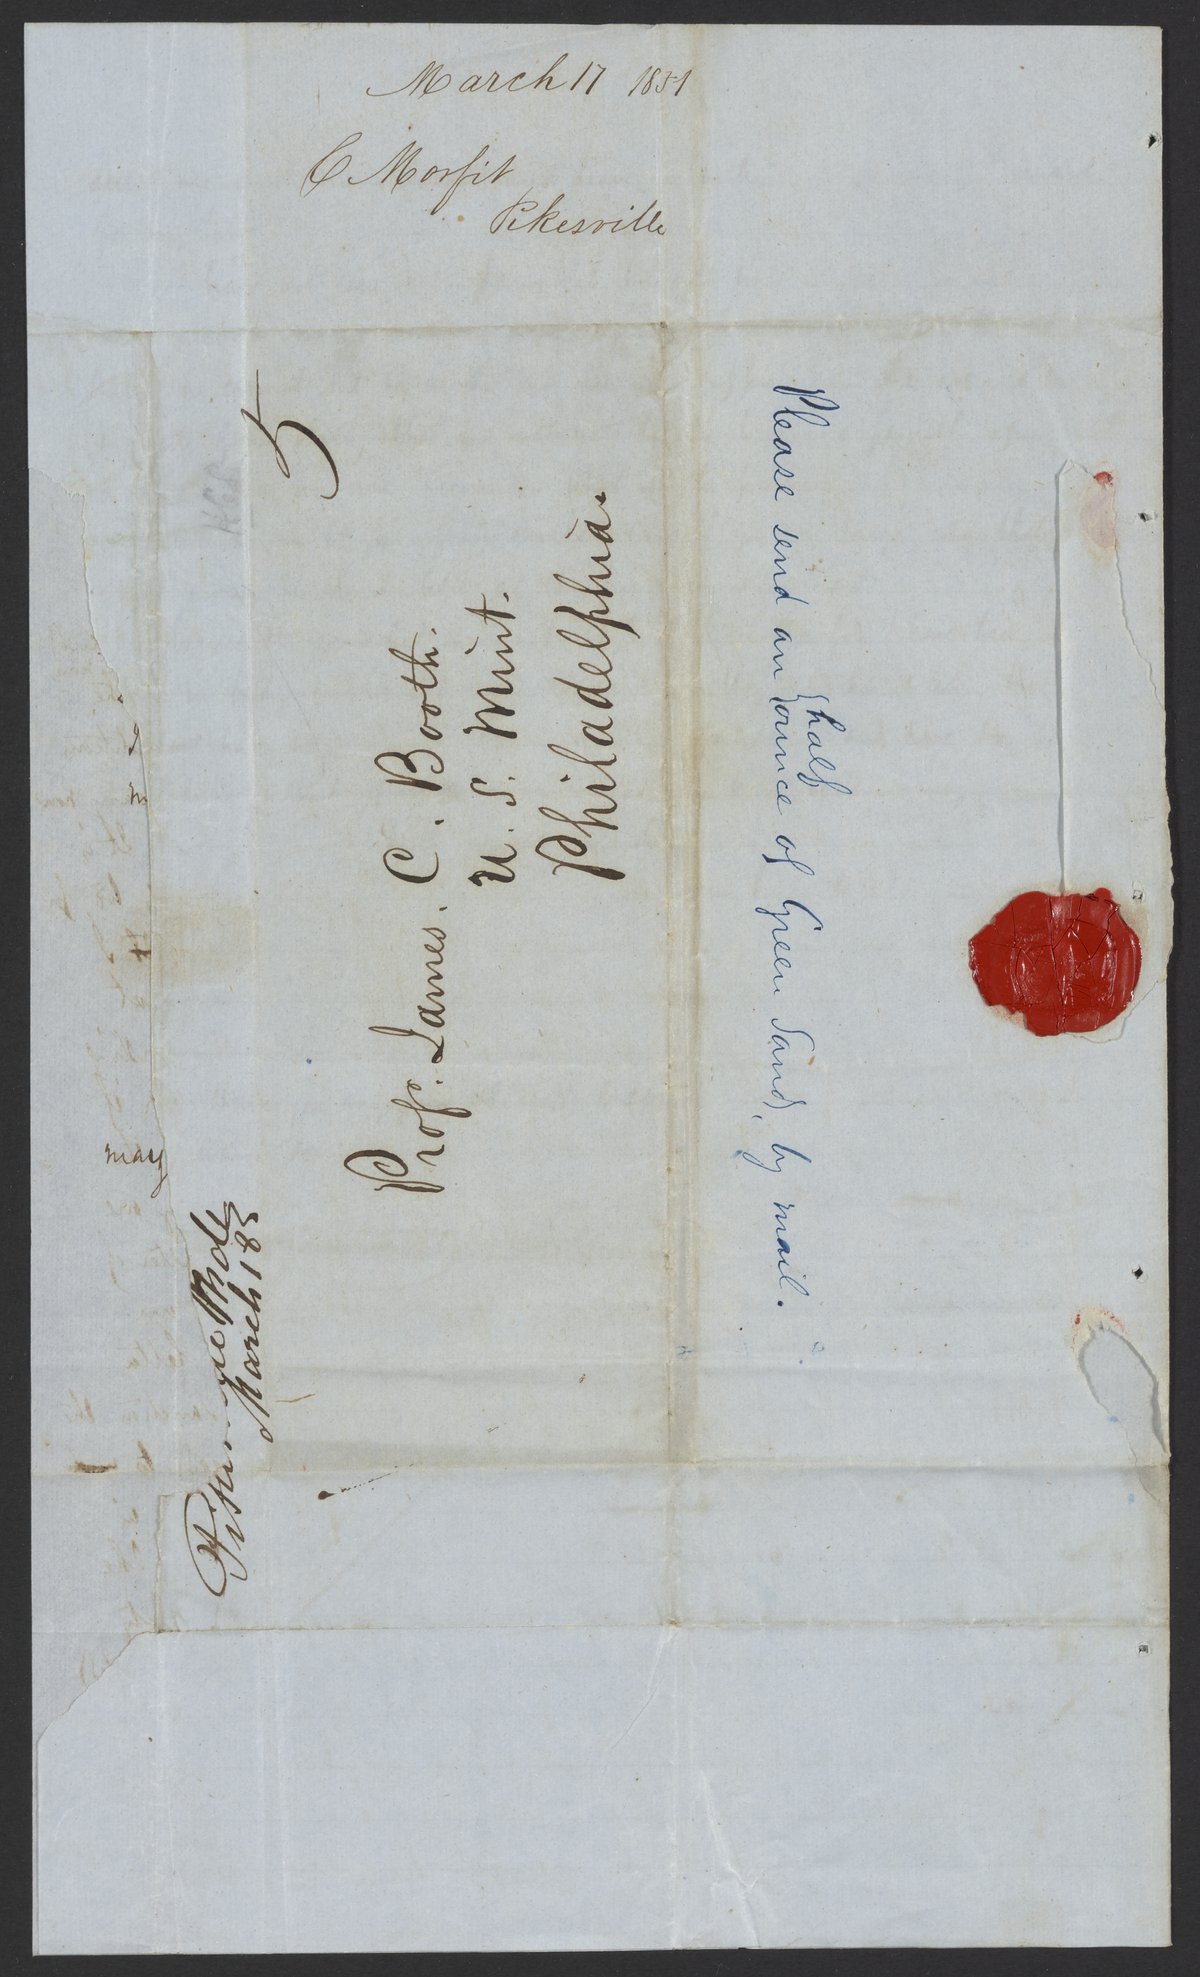 March 17 1851
C Morfit
Pikesville
5
Prof. James. C. Booth.
U. S. Mint.
Philadelphia.
Please send an half ounce of Green Sand, by mail.
may
March 18